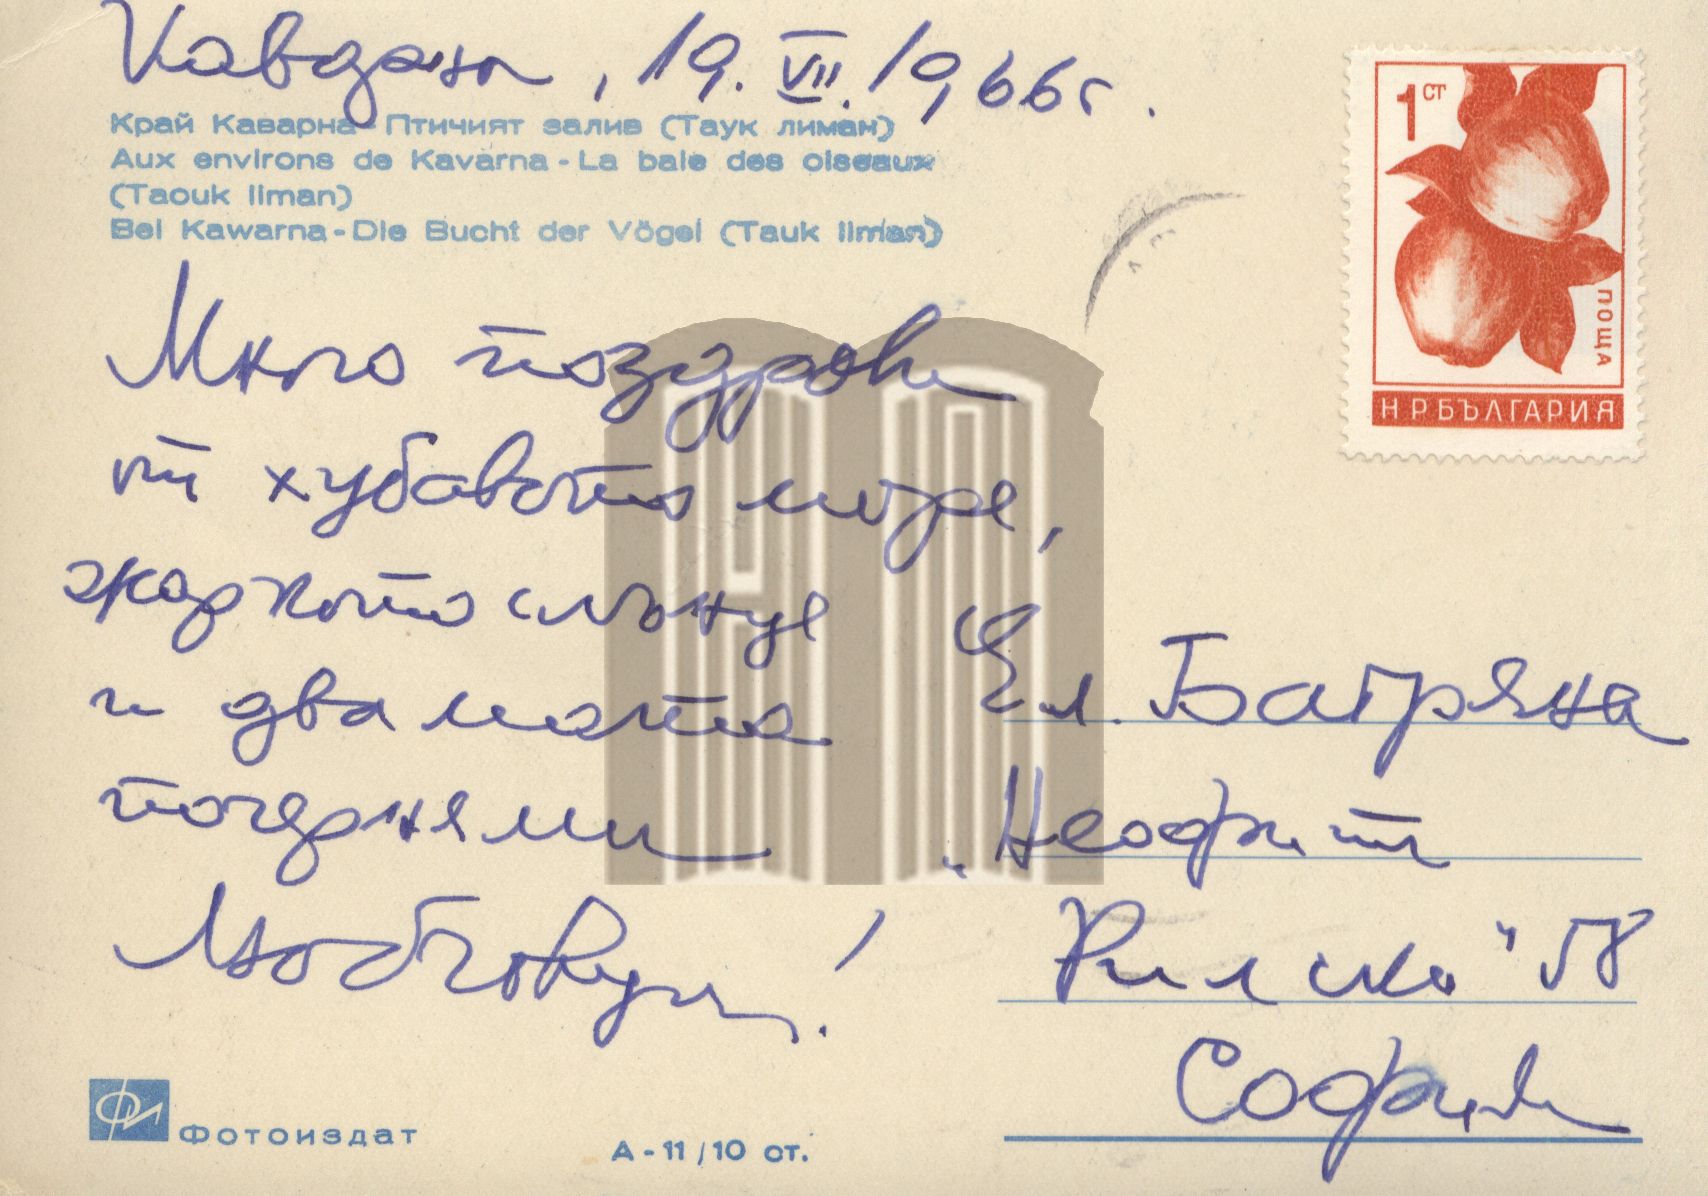 Каварна, 19. VII. 1966 г.
Край Каварна - Птичият залив (Таук лиман)
Aux environs de Kavarna - La baie des oiseaux
(Taouk liman)
Bei Kawarna - Die Bucht der Vögel (Tauk liman)
1 СТ
ПОЩА
НР БЪЛГАРИЯ
Много поздрави
от хубавото море,
жаркото слънце
и двамата
почерняли
!
Ел. Багряна
„Неофит
Рилски" 58
София
Фотоиздат
А - 11 / 10 ст.